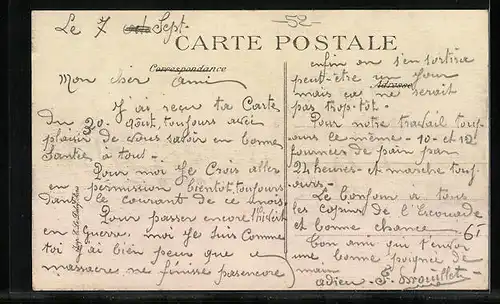 Le 7 Sept.
52
CARTE POSTALE
Correspondance
Adresse
Mon cher Ami
J'ai reçu ta Carte
Du 30 août, toujours avec
plaisir de vous savoir en bonne
Santée à tout.
Pour moi Je Crois aller
en permission bientot, toujours
Dans le courant de ce mois
Pour passer encore
en Guerre, moi Je Suis Comme
toi J'ai bien peur que ce
massacre ne finisse pas encore
enfin on s'en sortira
peut-être un Jour
mais ça ne serait
pas trop tôt.
Pour notre travail touj-
ours le même - 10 et 12
fournées de pain par
24 heures - et marche touj-
ours.
Le bonjour à tous
les copins de l'Escouade
et bonne chance
61
Ton ami qui t'envoi
une bonne poignée de
main
adieu - E.